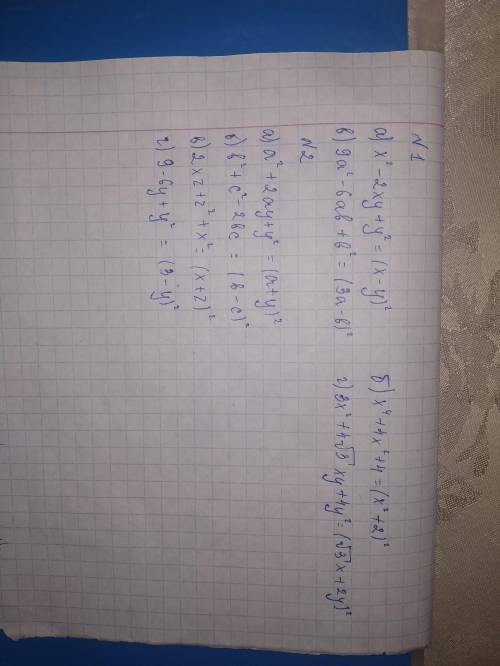 N1
а) x² - 2xy + y² = (x - y)²
б) x⁴ + 4x² + 4 = (x² + 2)²
в) 9a² - 6ab + b² = (3a - b)²
г) 3x² + 4√3 xy + 4y² = (√3 x + 2y)²
N2
а) a² + 2ay + y² = (a + y)²
б) b² + c² - 2bc = (b - c)²
в) 2xz + z² + x² = (x + z)²
г) 9 - 6y + y² = (3 - y)²